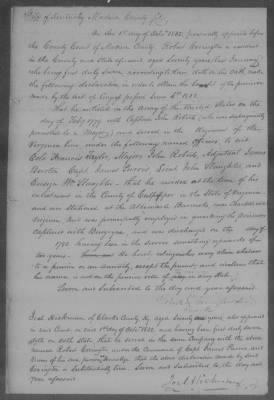 State of Kentucky Madison County Sct.
On the 1st day of Octr. 1832, personally appeared before
the County Court of Madison County Robert Covington a resident
in the County and State aforesaid aged seventy years last January
who being first duly sworn according to law doth on his oath make
the following declaration in order to obtain the benefit of the provision
made by the act of Congress passed June 7th 1832.
That he enlisted in the Army of the United States on the
day of Feby 1779 with Captain John Roberts (who was subsequently
promoted to a Majory) and served in the Regiment of the
Virginia line, under the following named officers to wit
Colo Francis Taylor, Major John Roberts, Adjutant
Capt James Purvis, Lieut John
Ensign He resided at the time of his
enlistment in the County of Culpepper in the State of Virginia
and was stationed at the Albemarle Barracks near Charlottesville
Virginia, and was principally employed in guarding the prisoners
captured with Burgoyne, and was discharged on the day of
1781 having been in the service something upwards of
two years. He hereby relinquishes every claim whatever
to a pension or an annuity, except the present, and declares that
his name is not on the pension roll of any State.
Sworn and Subscribed to the day and year aforesaid.
Robert Covington
Joel Hickman of Clarke County Ky aged years also appeared
in said Court on said 1st day of Octr. 1832, and having been first duly sworn
doth on oath state that he served in the same Company with the above
named Robert Covington under the Command of Capt James Purvis and
knows of his own personal knowledge that the above declaration made by said
Covington is substantially true. Sworn and Subscribed to, the day and
year aforesaid
Joel Hickman